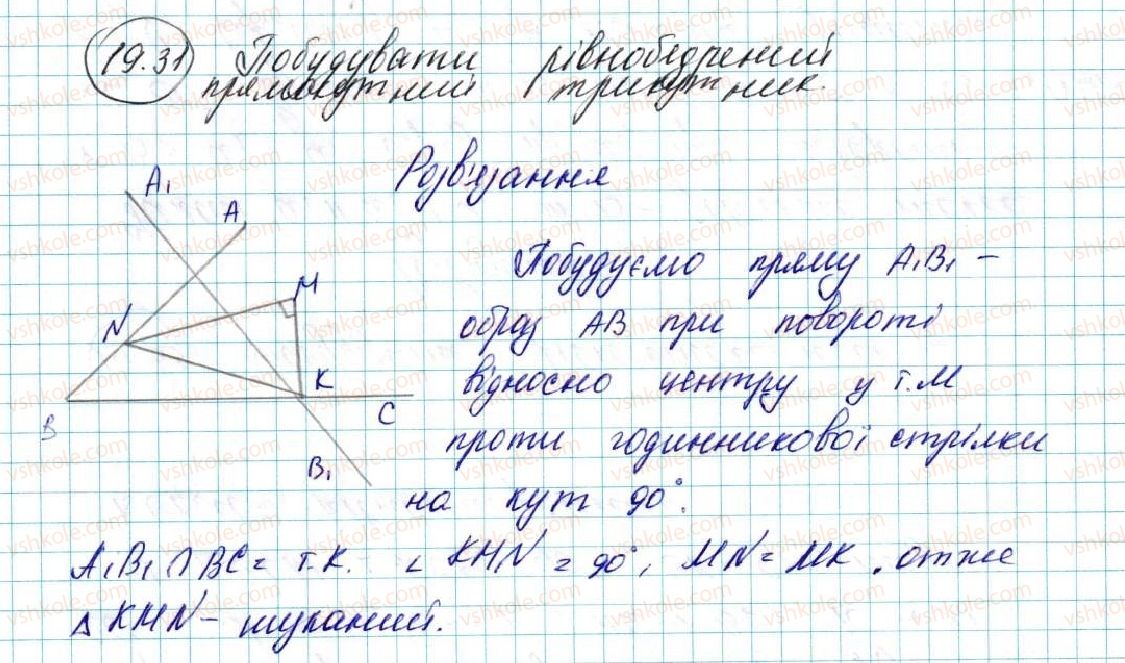 19.31 Побудувати рівнобедрений
прямокутний трикутник.
Розв'язання
A₁
A
N
M
K
B
C
B₁
Побудуємо пряму A₁B₁ –
образ AB при повороті
відносно центру у т. M
проти годинникової стрілки
на кут 90°.
A₁B₁ ∩ BC = т. K. ∠ KMN = 90°, MN = MK, отже
Δ KMN – шуканий.
vshkole.com